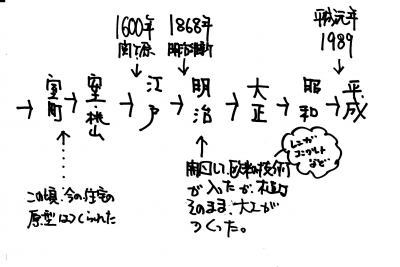 1600年
関ヶ原
1868年
明治維新
平成元年
1989
→ 室町 → 安土・桃山 → 江戸 → 明治 → 大正 → 昭和 → 平成
この頃、今の住宅の
原型はつくられた
開国し、欧米の技術
が入ったが、木造は
そのまま、大工が
つくった。
レンガ
コンクリート
など